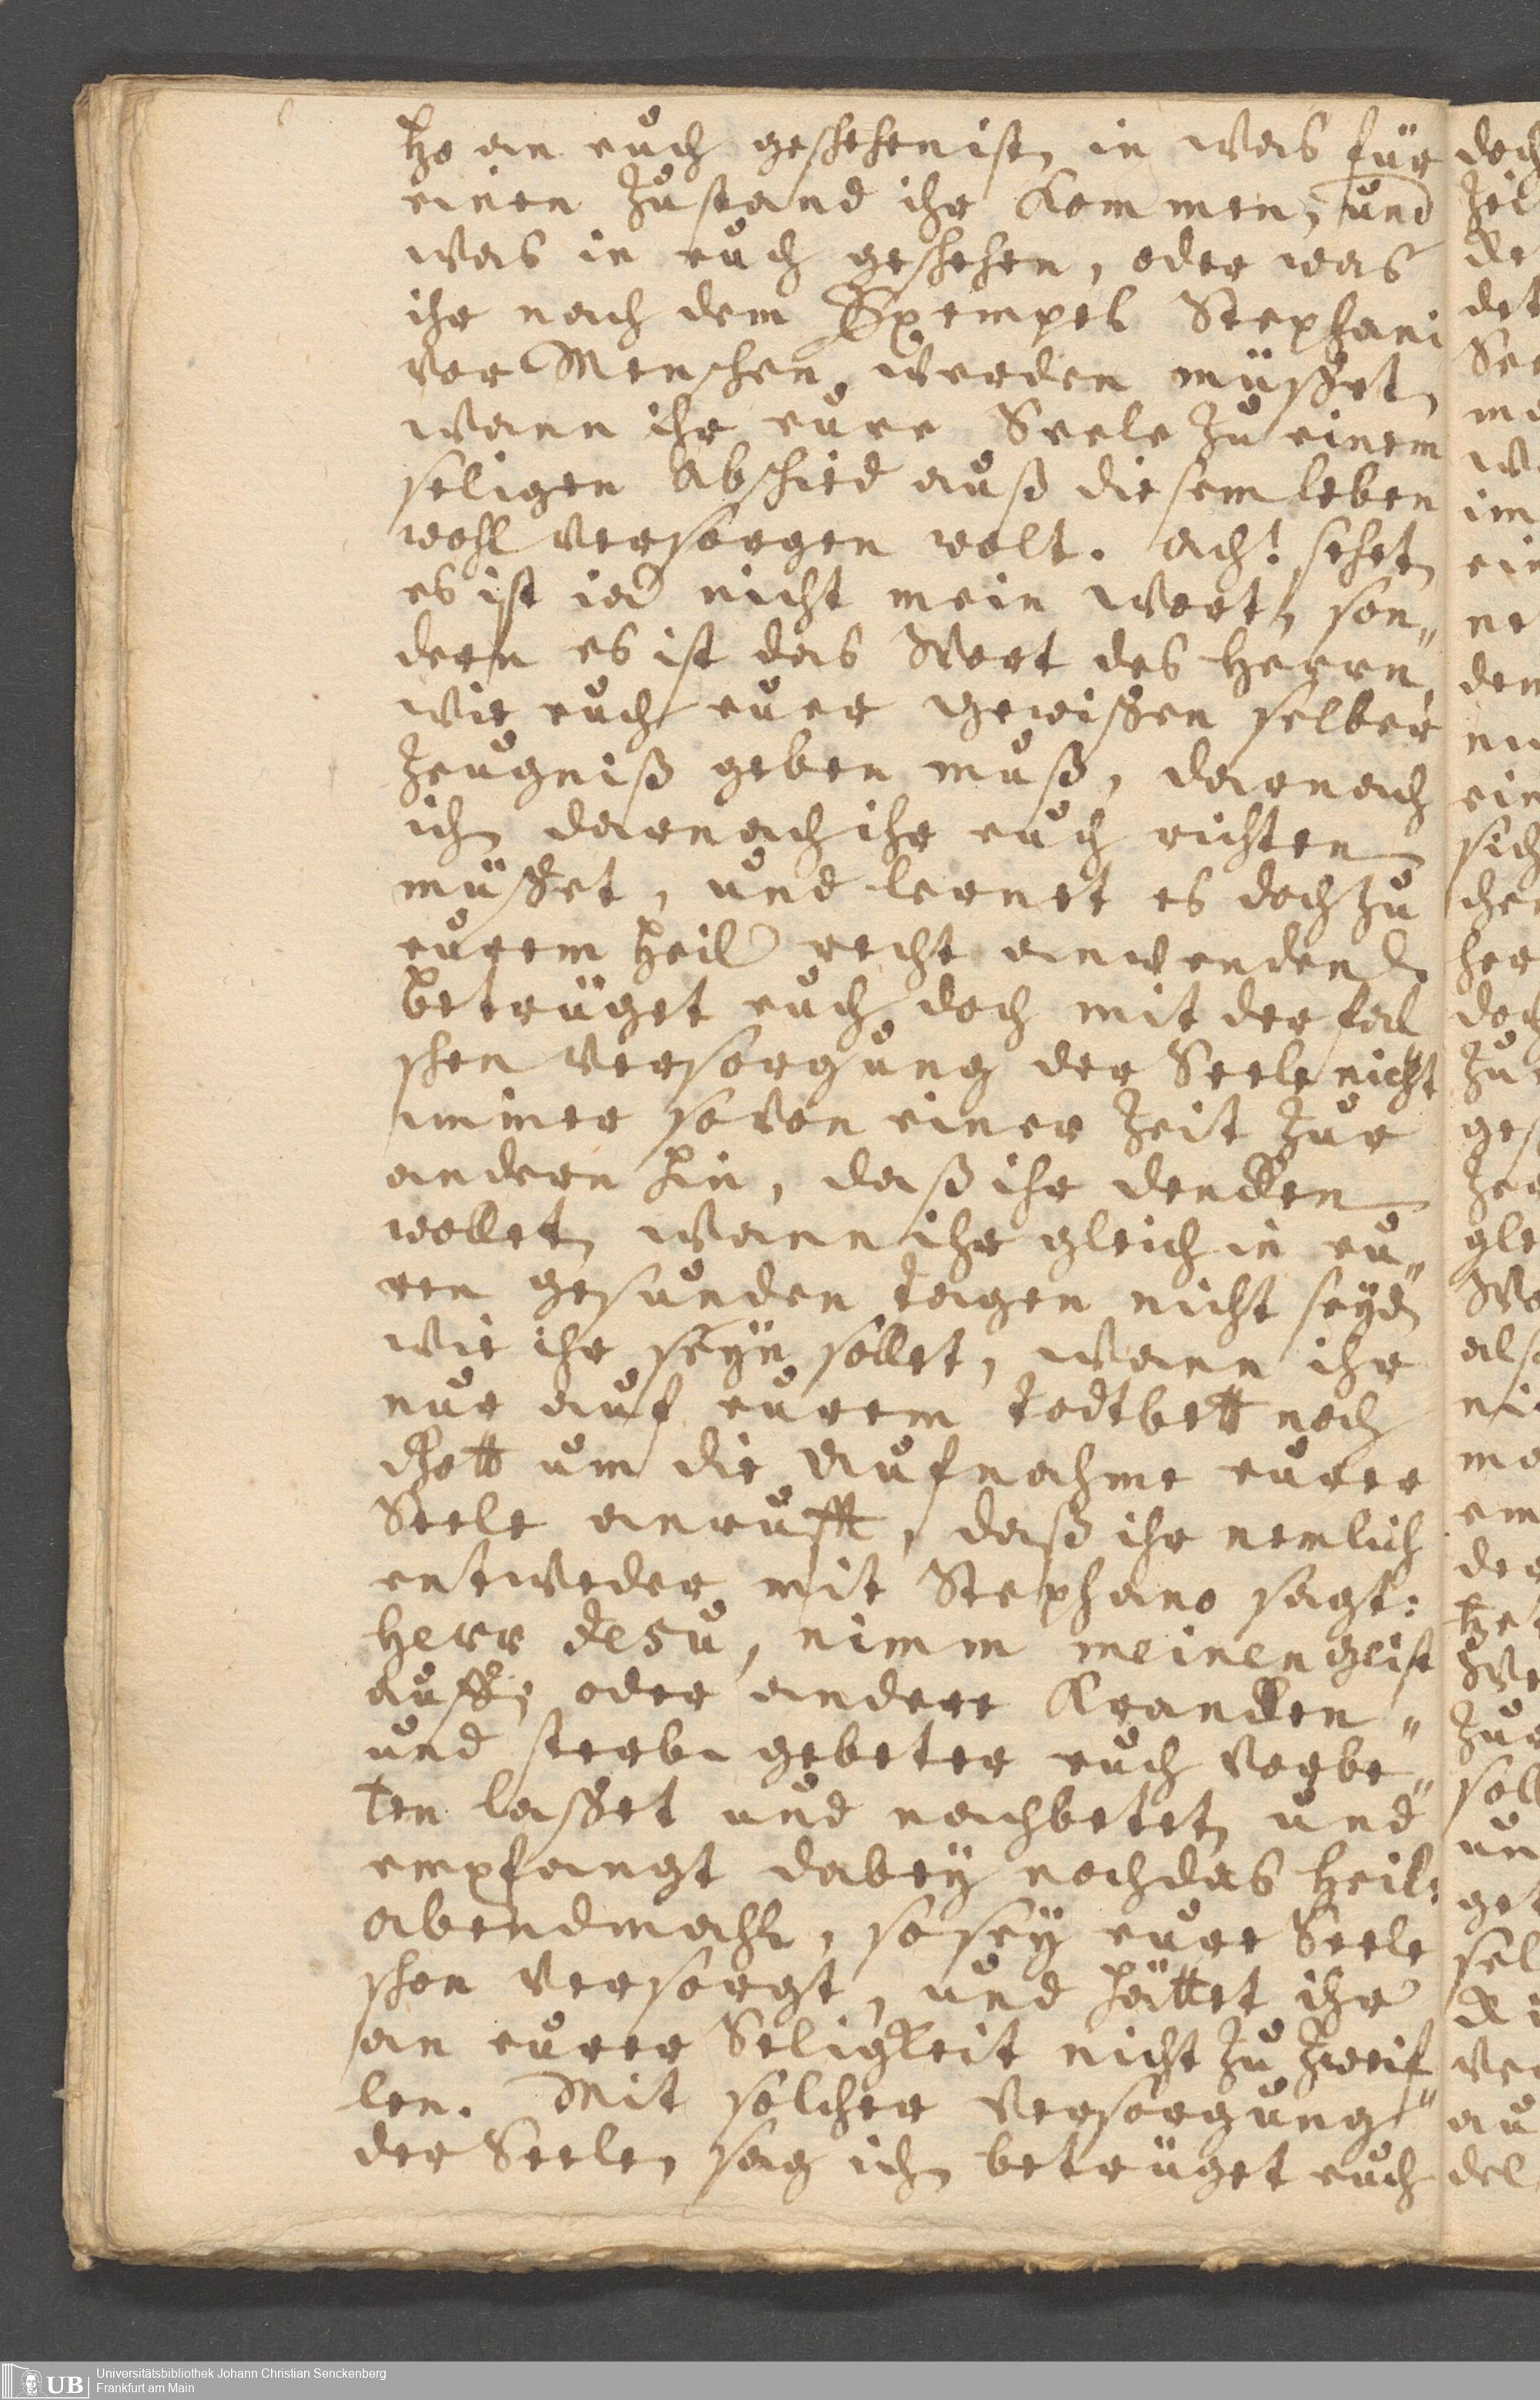 tzo an euch geschehen ist, in was für
einen Zustand ihr kommen, und
was in euch geschehen, oder was
ihr nach dem Exempel Stephani
vor Menschen werden müßet,
wann ihr eure Seele zu einem
seligen Abschied auß diesem leben
wohl versorgen wolt. Ach! sehet,
es ist ia nicht mein wort, son„
dern es ist das Wort des Herrn,
wie euch euer gewißen selber
Zeugniß geben muß, darnach
ich, darnach ihr euch richten
müßet, und lernet es doch zu
eurem Heil recht anwenden,
betrüget euch doch mit der fal
schen versorgung der Seele nicht
immer so von einer Zeit zur
andern hin, daß ihr dencken
wollet, wann ihr gleich in eu„
ren gesunden tagen nicht seyd,
wie ihr seyn sollet, wann ihr
nur auf eurem todtbett noch
Gott um die Aufnahme eurer
Seele anrufft, daß ihr nemlich
entweder mit Stephano sagt:
Herr Jesu, nimm meinen geist
auff; oder andere Krancken„
und sterb gebeter euch vorbe„
ten laßet und nachbetet, und
empfangt dabey noch das Heil:
abendmahl, so sey eure Seele
schon versorgt, und hättet ihr
an eurer Seligkeit nicht zu zweif
len. Mit solcher versorgung
der Seelen, sag ich, betrüget euch
Universitätsbibliothek Johann Christian Senckenberg
Frankfurt am Main
UB